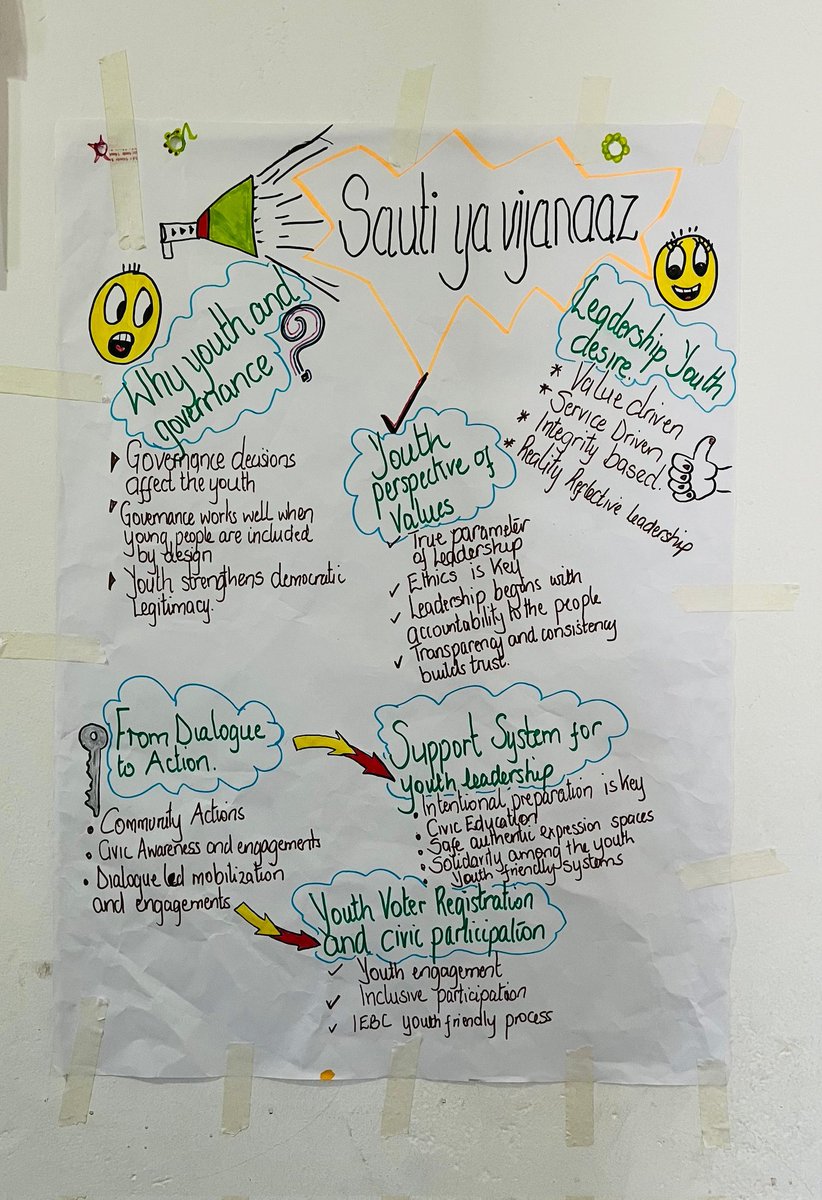 Sauti ya vijanaaz
Why youth and
governance
?
▶ Governance decisions
affect the youth
▶ Governance works well when
young people are included
by design
▶ Youth strengthens democratic
Legitimacy.
Youth
perspective of
Values
✓ True parameter
of leadership
✓ Ethics is key
✓ Leadership begins with
accountability to the people
✓ Transparency and consistency
builds trust.
Leadership Youth
desire.
* Value driven
* Service Driven
* Integrity based.
* Reality Reflective leadership
From Dialogue
to Action.
• Community Actions
• Civic Awareness and engagements
• Dialogue led mobilization
and engagements
Support System for
youth leadership
• Intentional preparation is key
• Civic Education
• Safe authentic expression spaces
• Solidarity among the youth
• Youth friendly systems
Youth Voter Registration
and civic participation
✓ Youth engagement
✓ Inclusive participation
✓ IEBC youth friendly process